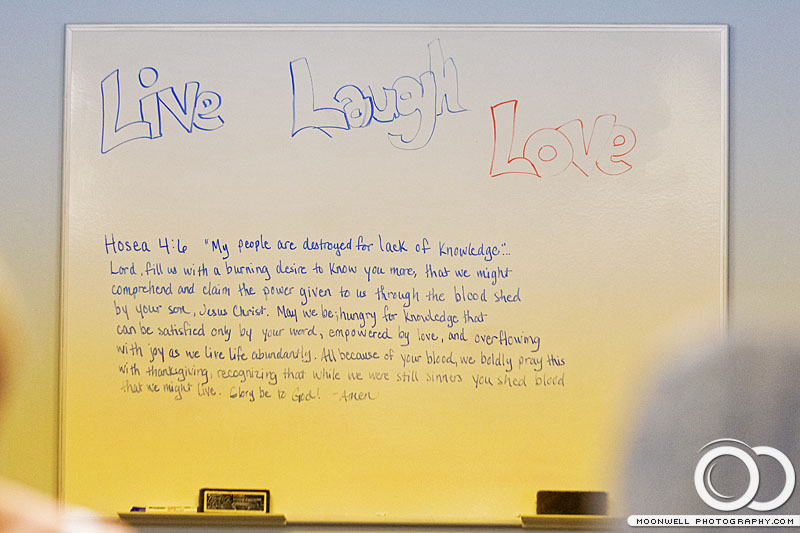 Live Laugh Love
Hosea 4:6 "My people are destroyed for lack of knowledge"...
Lord, fill us with a burning desire to know you more, that we might
comprehend and claim the power given to us through the blood shed
by your son, Jesus Christ. May we be hungry for knowledge that
can be satisfied only by your word, empowered by love, and overflowing
with joy as we live life abundantly. All because of your blood, we boldly pray this
with thanksgiving, recognizing that while we were still sinners you shed blood
that we might live. Glory be to God! -Amen
MOONWELL PHOTOGRAPHY.COM